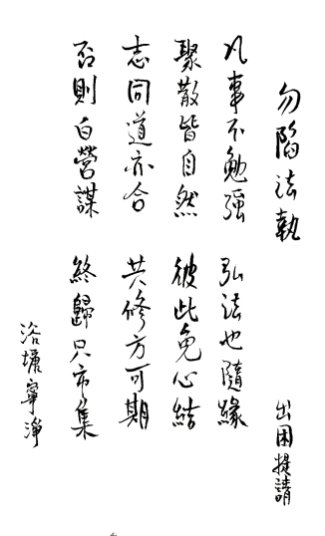 勿陷法執 出困提請
凡事不勉強 弘法也隨緣
聚散皆自然 彼此免心結
志同道亦合 共修方可期
否則白營謀 終歸只市集
浴塘寧淨